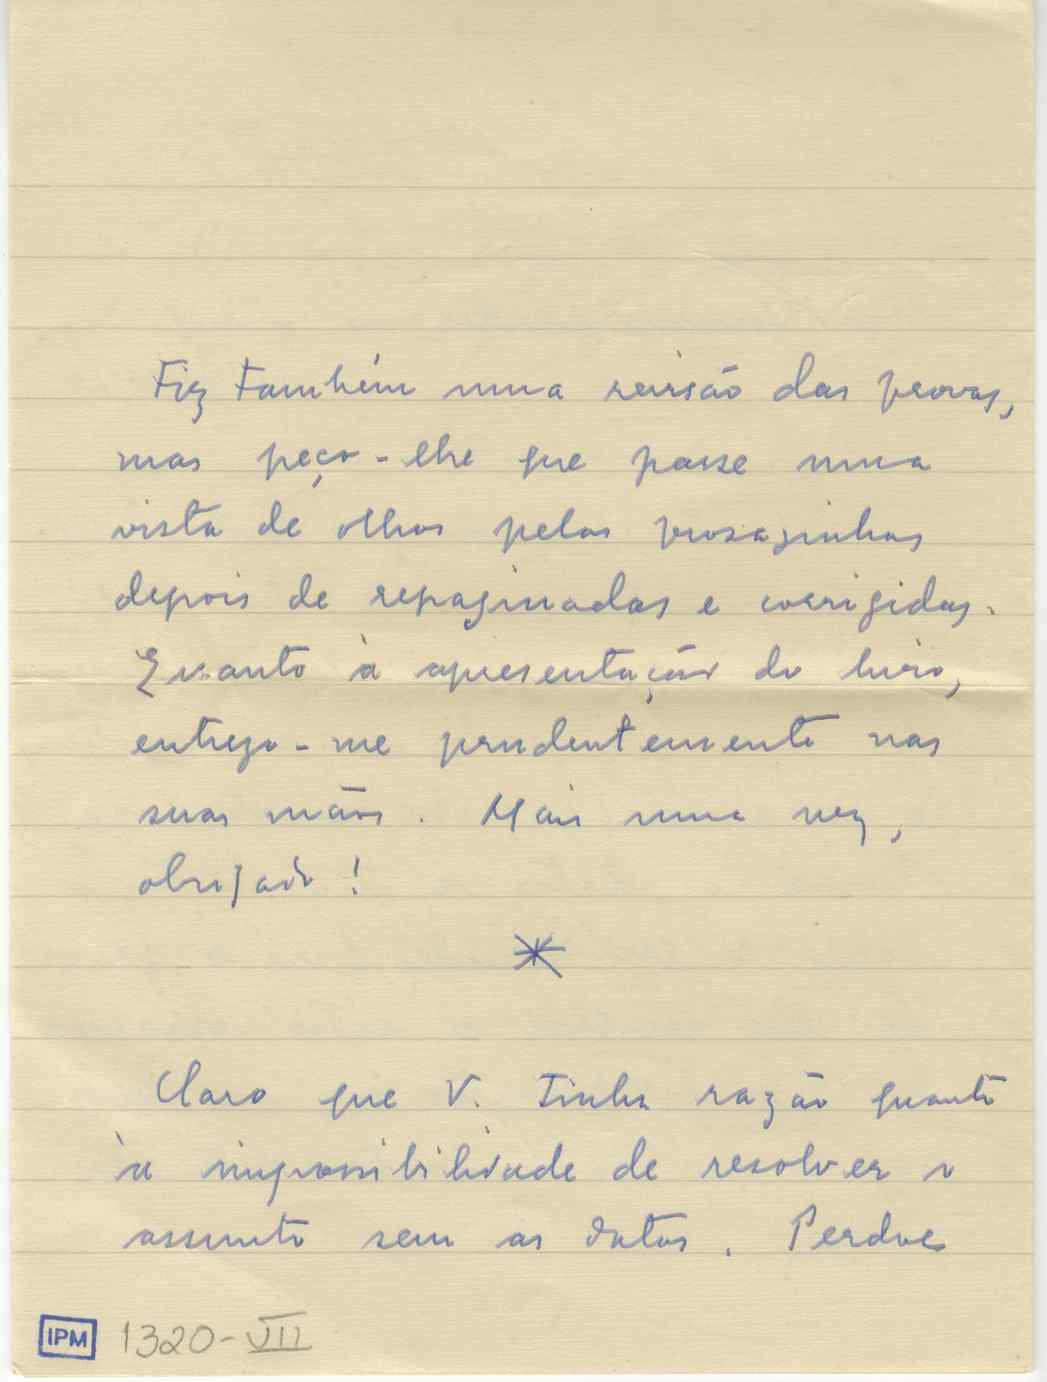 Fiz também uma revisão das provas,
mas peço-lhe que passe uma
vista de olhos pelas prosazinhas
depois de repaginadas e corrigidas.
Quanto à apresentação do livro,
entrego-me prudentemente nas
suas mãos. Mais uma vez,
obrigado!
*
Claro que V. tinha razão quanto
à impossibilidade de resolver o
assunto sem as datas. Perdoe
IPM 1320-VII